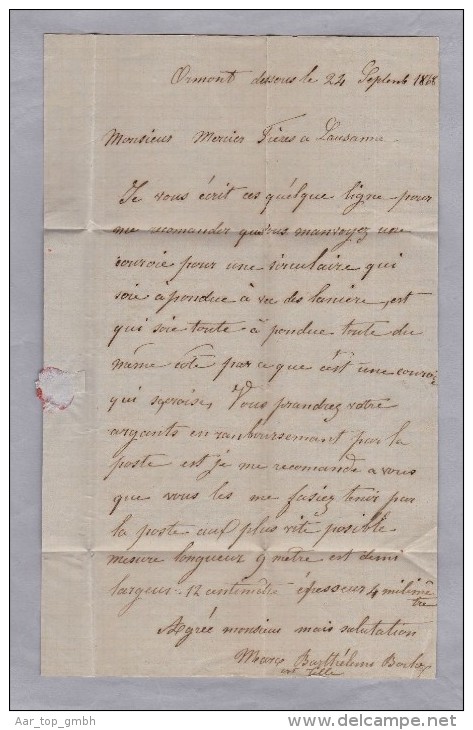 Ormont dessous le 24 Septemb 1868
Monsieur Mercier Frères a Lausanne
Je vous écrit ces quelque ligne pour
me recomander que vous manvoyez une
couroie pour une sirculaire qui
soie àpondue à vec des lanière, est
qui soie toute à pondue toute du
même côté par ce que c'est une couroie
qui sçeroise, Vous prandrez votre
argants en ranboursemant par la
poste est je me recomande a vous
que vous les me fasiez tenir par
la poste aux plus vite posible
mesure longueur 9 mêtre est demi
largeur 12 centimêtre épesseur 4 milimê
tre
Agrée monsieur mais salutation
Marc Barthélemi
est
Aar_top_gmbh
www.delcampe.net